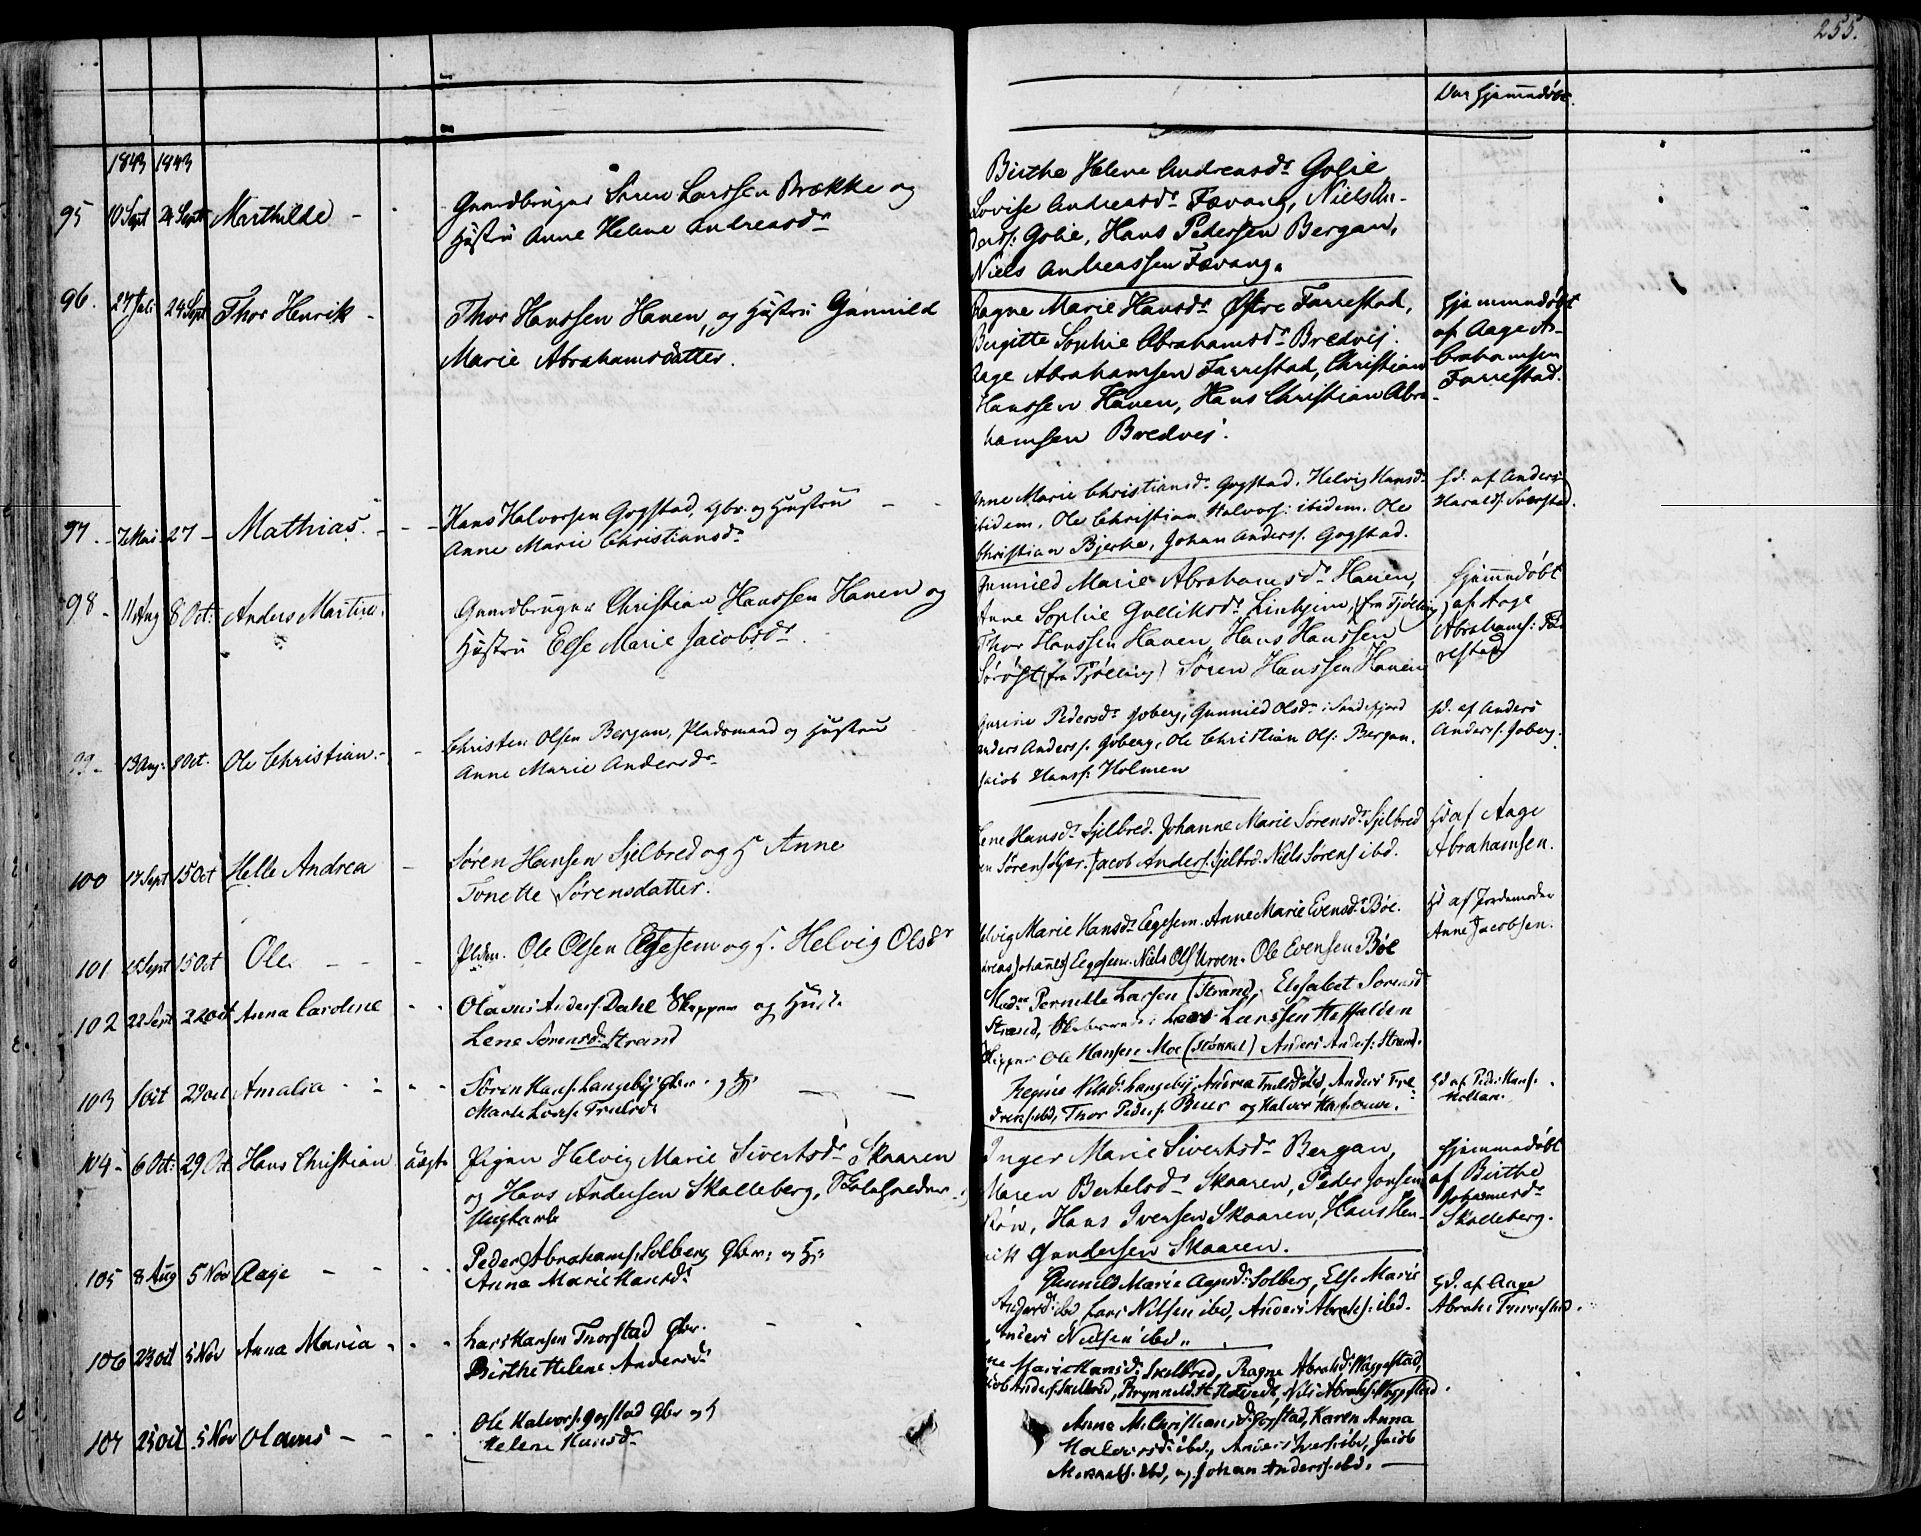 255.
Var hjemmedøbt.
1843 1843
95 10 Sept 24 Sept Marthilde - -
Gaardbruger Søren Larssen Brække og
Hustru Anne Helene Andreasdr
Birthe Helene Andreasdr Golie
Lovise Andreasdr Fævang, Niels An-
derss: Golie, Hans Pedersen Bergan,
Niels Andreassen Fævang.
96. 27 Juli 24 Sept Thor Henrik -
Thor Hanssen Haven, og Hustru Gunnild
Marie Abrahamsdatter.
Ragne Marie Hansdr Østre Farrestad,
Birgitte Sophie Abrahamsdr Bredvej.
Aage Abrahamsen Farrestad, Christian
Hanssen Haven, Hans Christian Abra
hamsen Bredvej.
Hjemmedøbt
af Aage A-
brahamsen
Farrestad.
97. - 7 Mai 27 - Mathias. - - -
Hans Halvorsen Gogstad, gbr. og Hustru - -
Anne Marie Christiansdr
Anne Marie Christiansdr Gogstad. Helvig Hansdr
ibidem. Ole Christian Halvors: ibidem. Ole
Christian Bjerke, Johan Anderss. Gogstad.
Hd. af Anders
Haralds.
98. - 11 Aug 8 Oct: Anders Martin.
Gaardbruger Christian Hanssen Haven og
Hustru Else Marie Jacobsdr.
Gunnild Marie Abrahamsdr Haven,
Anne Sophie Gulliksdr (fra Tjølling)
Thor Hanssen Haven, Hans Hanssen
(fra Tjølling) Søren Hanssen Haven
Hjemmedøbt
af Aage
Abrahams: Far
restad
99 - 13 Aug: 8 Oct. Ole Christian. - -
Christen Olsen Bergan, Pladsmand og Hustru
Anne Marie Andersdr
Pedersdr Goberg, Gunnild Olsdr i Sandefjord
Anders Anderss. Goberg, Ole Christian Ols: Bergan.
Jacob Hanss: Holmen
Hd. af Anders
Anderss. Goberg.
100 17 Sept 15 Oct Helle Andrea -
Søren Hansen Sjelbred og H Anne
Tonette Sørensdatter.
Lene Hansdr Sjelbred. Johanne Marie Sørensdr Sjelbred
Jacob Anders. Sjelbrd. Niels Sørens ibd.
Hd af Aage
Abrahamsen.
101 15 Oct Ole - - -
Pldm. Ole Olsen Eegesem og H. Helvig Olsdr
Helvig Marie Hansdr Eegesem. Anne Marie Evensdr Bøe.
Johannes Eegesem. Niels Ols Uroen. Ole Evensen Bøe
Hd af Jordemoder
Anne Jacobsen.
102 22 Sept 22 Oct Anna Caroline - -
Olaves Anders. Dahl Skipper og Hust.
Lene Sørensdr Strand
Pernille Larsen (Strand), Elisabet Sørensd
Strand, Lars Larssen Haffalden
Skipper Ole Hansen Moe (Stokket) Anders Anders: Strand.
103 1 Oct 29 Oct Amalia - - - -
Søren Hans. Langebÿ gbr. og H: - -
Maren Lovise Trulsdr
Regine Nilsdr Langebij, Andrea Trulsdr ibd, Anders Fre-
driks. ibd, Thor Peders. Buer og Halvor
Hd af Peder Hans.
104 - 6 Oct: 29 Oct. Hans Christian uægt.
Pigen Helvig Marie Sivertsdr Skaaren
og Hans Andersen Skalleberg,
Ungkarle
Inger Marie Sivertsdr Bergan,
Maren Bertelsdr Skaaren, Peder Jonsen
Røn, Hans Iversen Skaaren, Hans Hen-
rik Gundersen Skaaren.
Hjemmedøbt
af Birthe
Johannesdr
Skalleberg.
105 8 Aug 5 Nov Aage - - - -
Peder Abrahams. Solberg Gbr: og H:
Anna Marie Hansdr
Gunnild Marie Aagesdr. Solberg, Else Marie
ibd Lars Nilsen ibd, Anders Abrahs. ibd.
Anders Nielsen ibd.
Hd. af Aage
Abrahs Farrestad.
106 23 Oct 5 Nov Anna Maria - - -
Lars Hansen Gbr. - -
Birthe Helene Andersdr
Marie Hansdr Skelbred, Ragne Abrahsdr Næggestad,
Jacob Anders. Skelbred, Nils Abrahs. Næggestad.
107 23 Oct 5 Nov Olaves - - -
Ole Halvors. Gogstad Gbr og H
Helene Hansdr
Anne M. Christiansdr. Gogstad, Karen Anna
Halvorsdr ibd., Anders Ivers. ibd, Jacob
ibd, og Johan Anderss. ibd. -